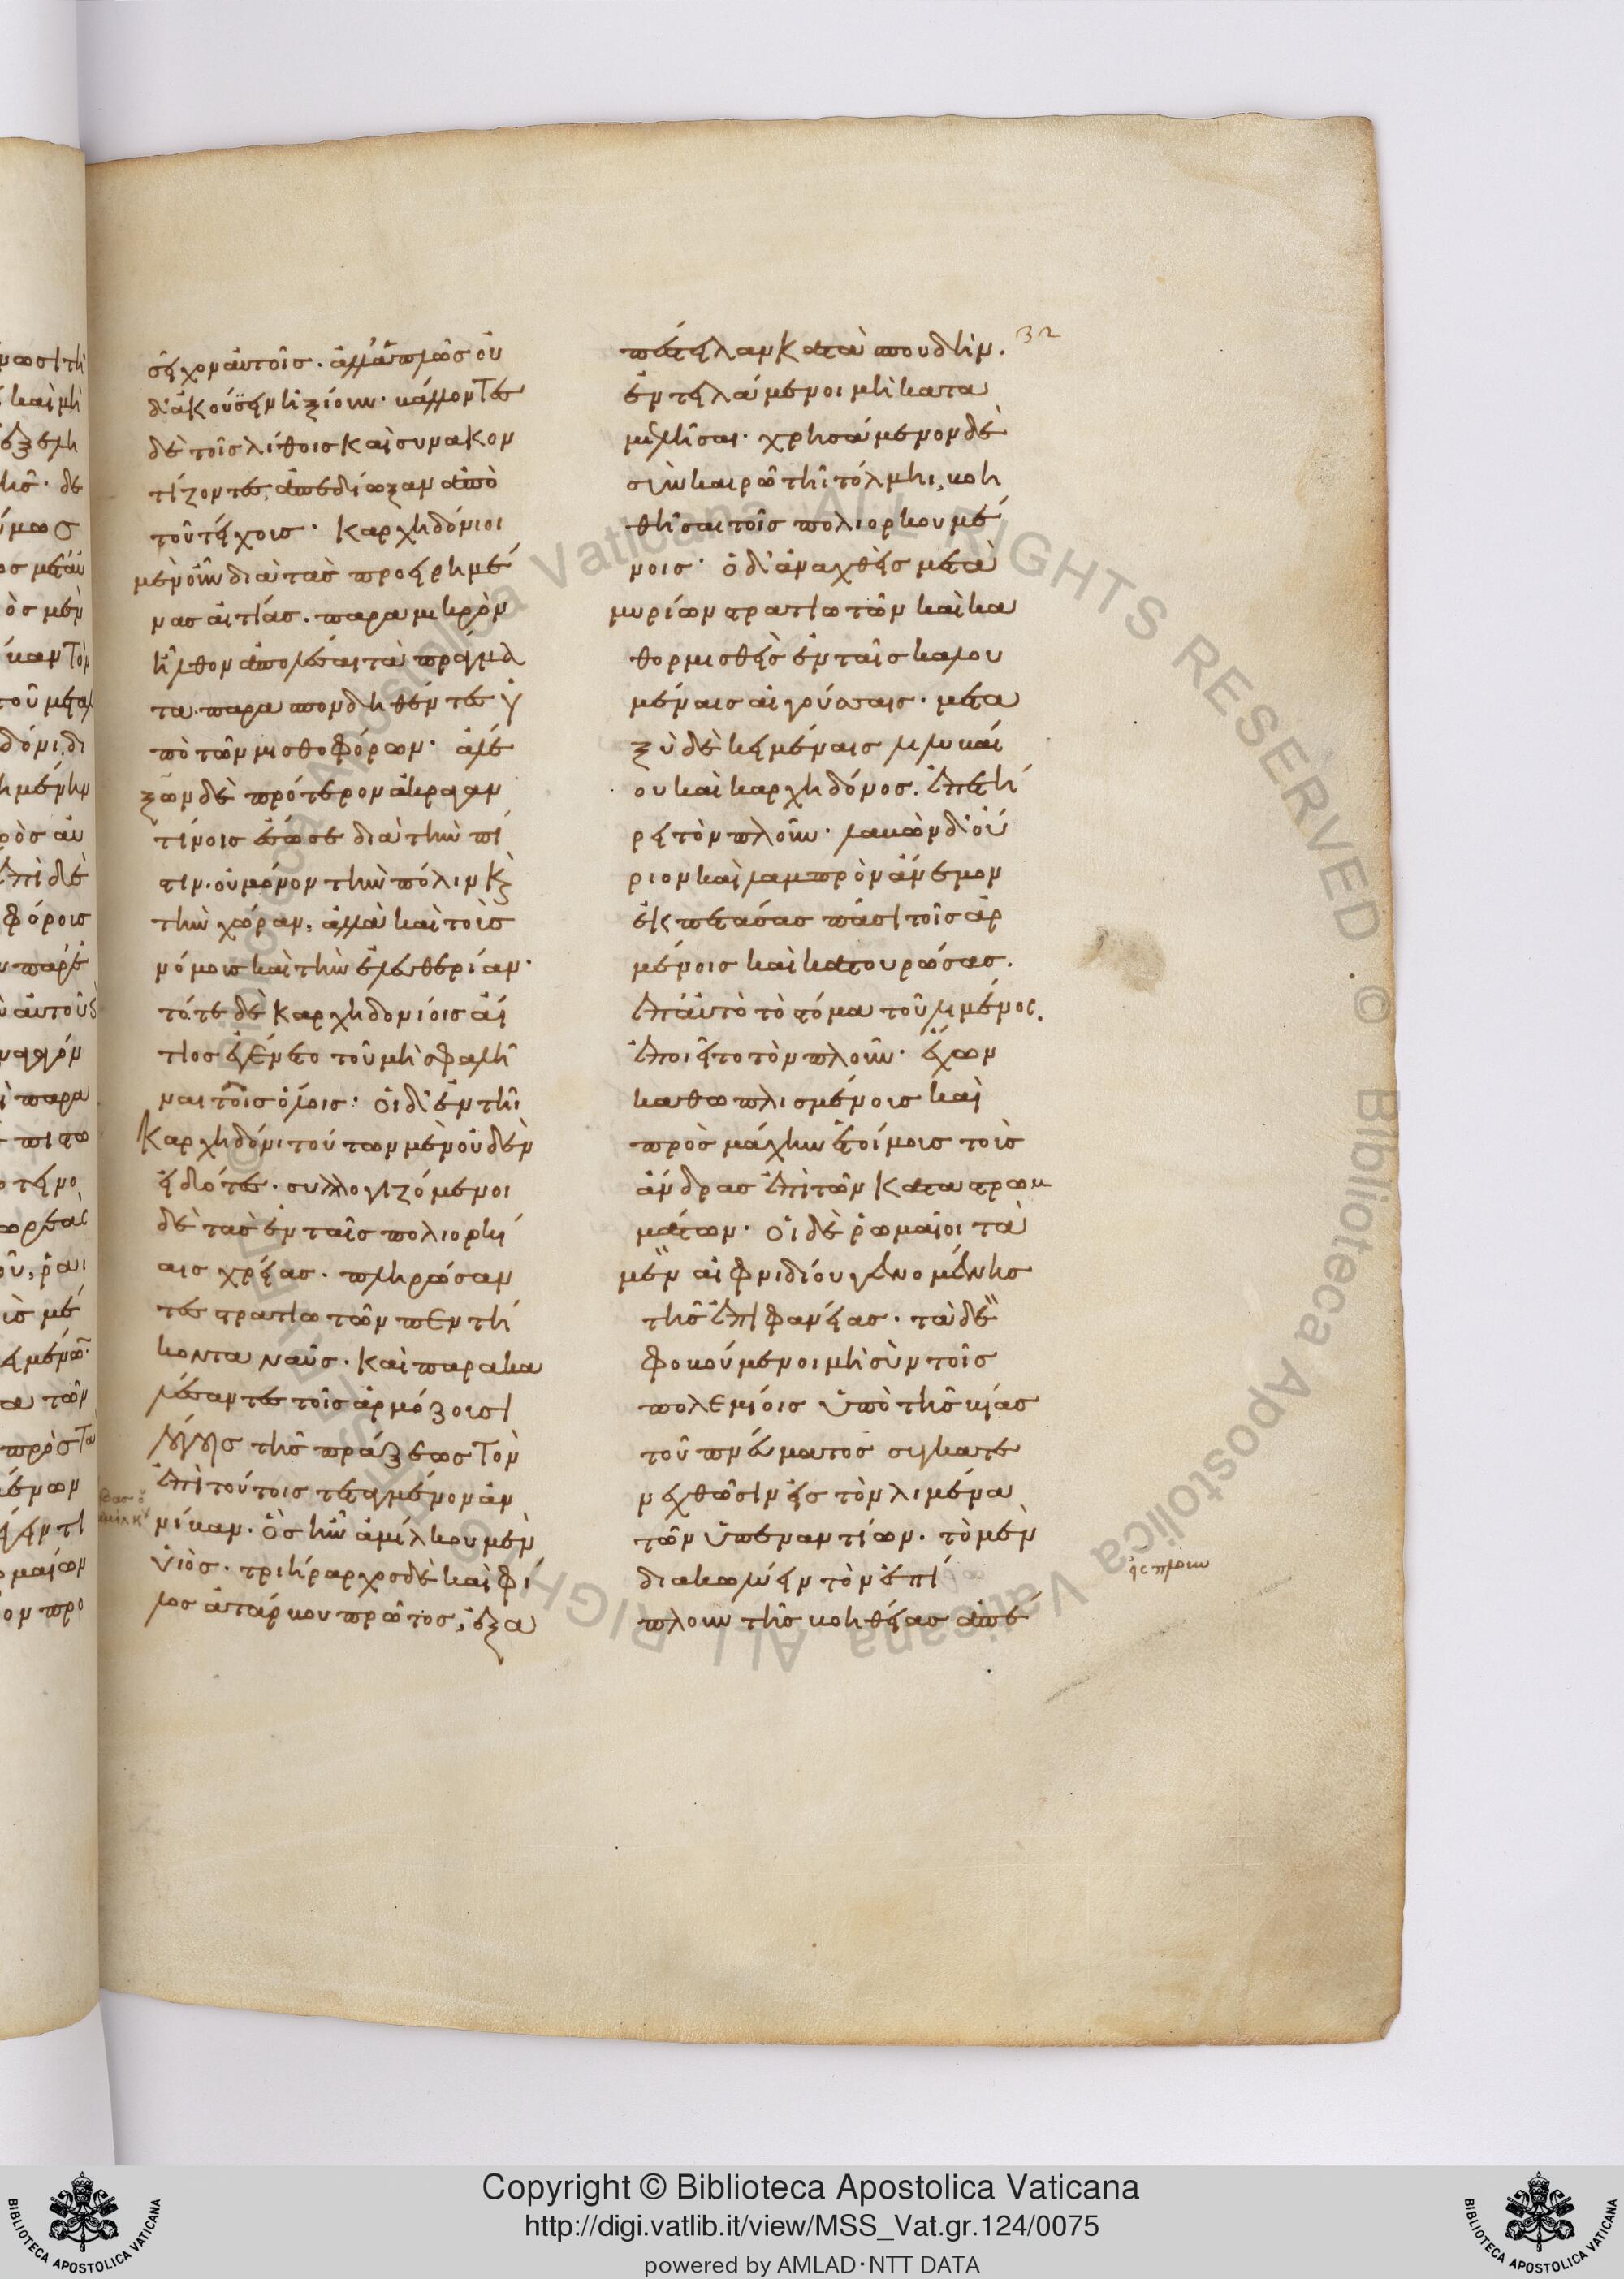 32
σεῖχον αὐτοῖς. ἀλλ' ἁπλῶς οὐ
δ' ἀκούσειν ἠξίουν. βάλλοντες
δὲ τοῖς λίθοις καὶ συνακον
τίζοντες, ἀπεδίωξαν ἀπὸ
τοῦ τείχους. Καρχηδόνιοι
μὲν οὖν διὰ τὰς προειρημέ
νας αἰτίας. παρὰ μικρὸν
ἦλθον ἀπολέσαι τὰ πράγμα
τα παρασπονδηθέντες ὑ
πὸ τῶν μισθοφόρων. ἀλέ
ξων δὲ πρότερον ἀκραγαν
τίνοις ἔσωσε διὰ τὴν πί
στιν. οὐ μόνον τὴν πόλιν κ
τὴν χώραν, ἀλλὰ καὶ τοὺς
νόμους καὶ τὴν ἐλευθερίαν.
τότε δὲ Καρχηδονίοις αἴ
τιος ἐγένετο τοῦ μὴ σφαλῆ
ναι τοῖς ὅλοις. οἱ δ' ἐν τῆι
Καρχηδόνι τούτων μὲν οὐδὲν
εἰδότες. συλλογιζόμενοι
δὲ τὰς ἐν ταῖς πολιορκί
αις χρείας. πληρώσαν
τες στρατιωτῶν πεντή
κοντα ναῦς. καὶ παρακα
λέσαντες τοῖς ἁρμόζουσι
λόγοις τῆς πράξεως τὸν
ἐπὶ τούτοις τεταγμένον ἀν
νίβαν. ὃς ἦν ἀμίλκου μὲν
υἱὸς. τριήραρχος δὲ καὶ φί
λος ἀτάρβου πρῶτος, ἐξα
πέστειλαν κατὰ σπουδήν.
ἐντειλάμενοι μὴ κατα
μελλῆσαι. χρησάμενον δὲ
σὺν καιρῶ τῆι τόλμηι, βοη
θῆσαι τοῖς πολιορκουμέ
νοις. ὁ δ' ἀναχθεὶς μετὰ
μυρίων στρατιωτῶν καὶ κα
θορμισθεὶς ἐν ταῖς καλου
μέναις αἰγούσσαις. μετα
ξὺ δὲ κειμέναις λιλυβαί
ου καὶ καρχηδόνος. ἐπετή
ρει τὸν πλοῦν. λαβὼν δ' οὔ
ριον καὶ λαμπρὸν ἄνεμον
ἐκπετάσας πᾶσι τοῖς ἀρ
μένοις καὶ κατουρώσας.
ἐπ' αὐτὸ τὸ στόμα τοῦ λιμένος.
ἐποιεῖτο τὸν πλοῦν. ἔχων
καθωπλισμένους καὶ
πρὸς μάχην ἑτοίμους τοὺς
ἄνδρας ἐπὶ τῶν καταστρωμ
μάτων. οἱ δὲ ῥωμαῖοι τὰ
μὲν αἰφνιδίου γενομένης
τῆς ἐπιφανείας. τὰ δὲ
φοβούμενοι μὴ σὺν τοῖς
πολεμίοις ὑπὸ τῆς βίας
τοῦ πνεύματος συγκατε
νεχθῶσιν εἰς τὸν λιμένα
τῶν ὑπεναντίων. τὸ μὲν
διακωλύειν τὸν ἐπί
πλουν τῆς βοηθείας ἀπέ
εἴσπλουν
Copyright © Biblioteca Apostolica Vaticana
http://digi.vatlib.it/view/MSS_Vat.gr.124/0075
powered by AMLAD·NTT DATA